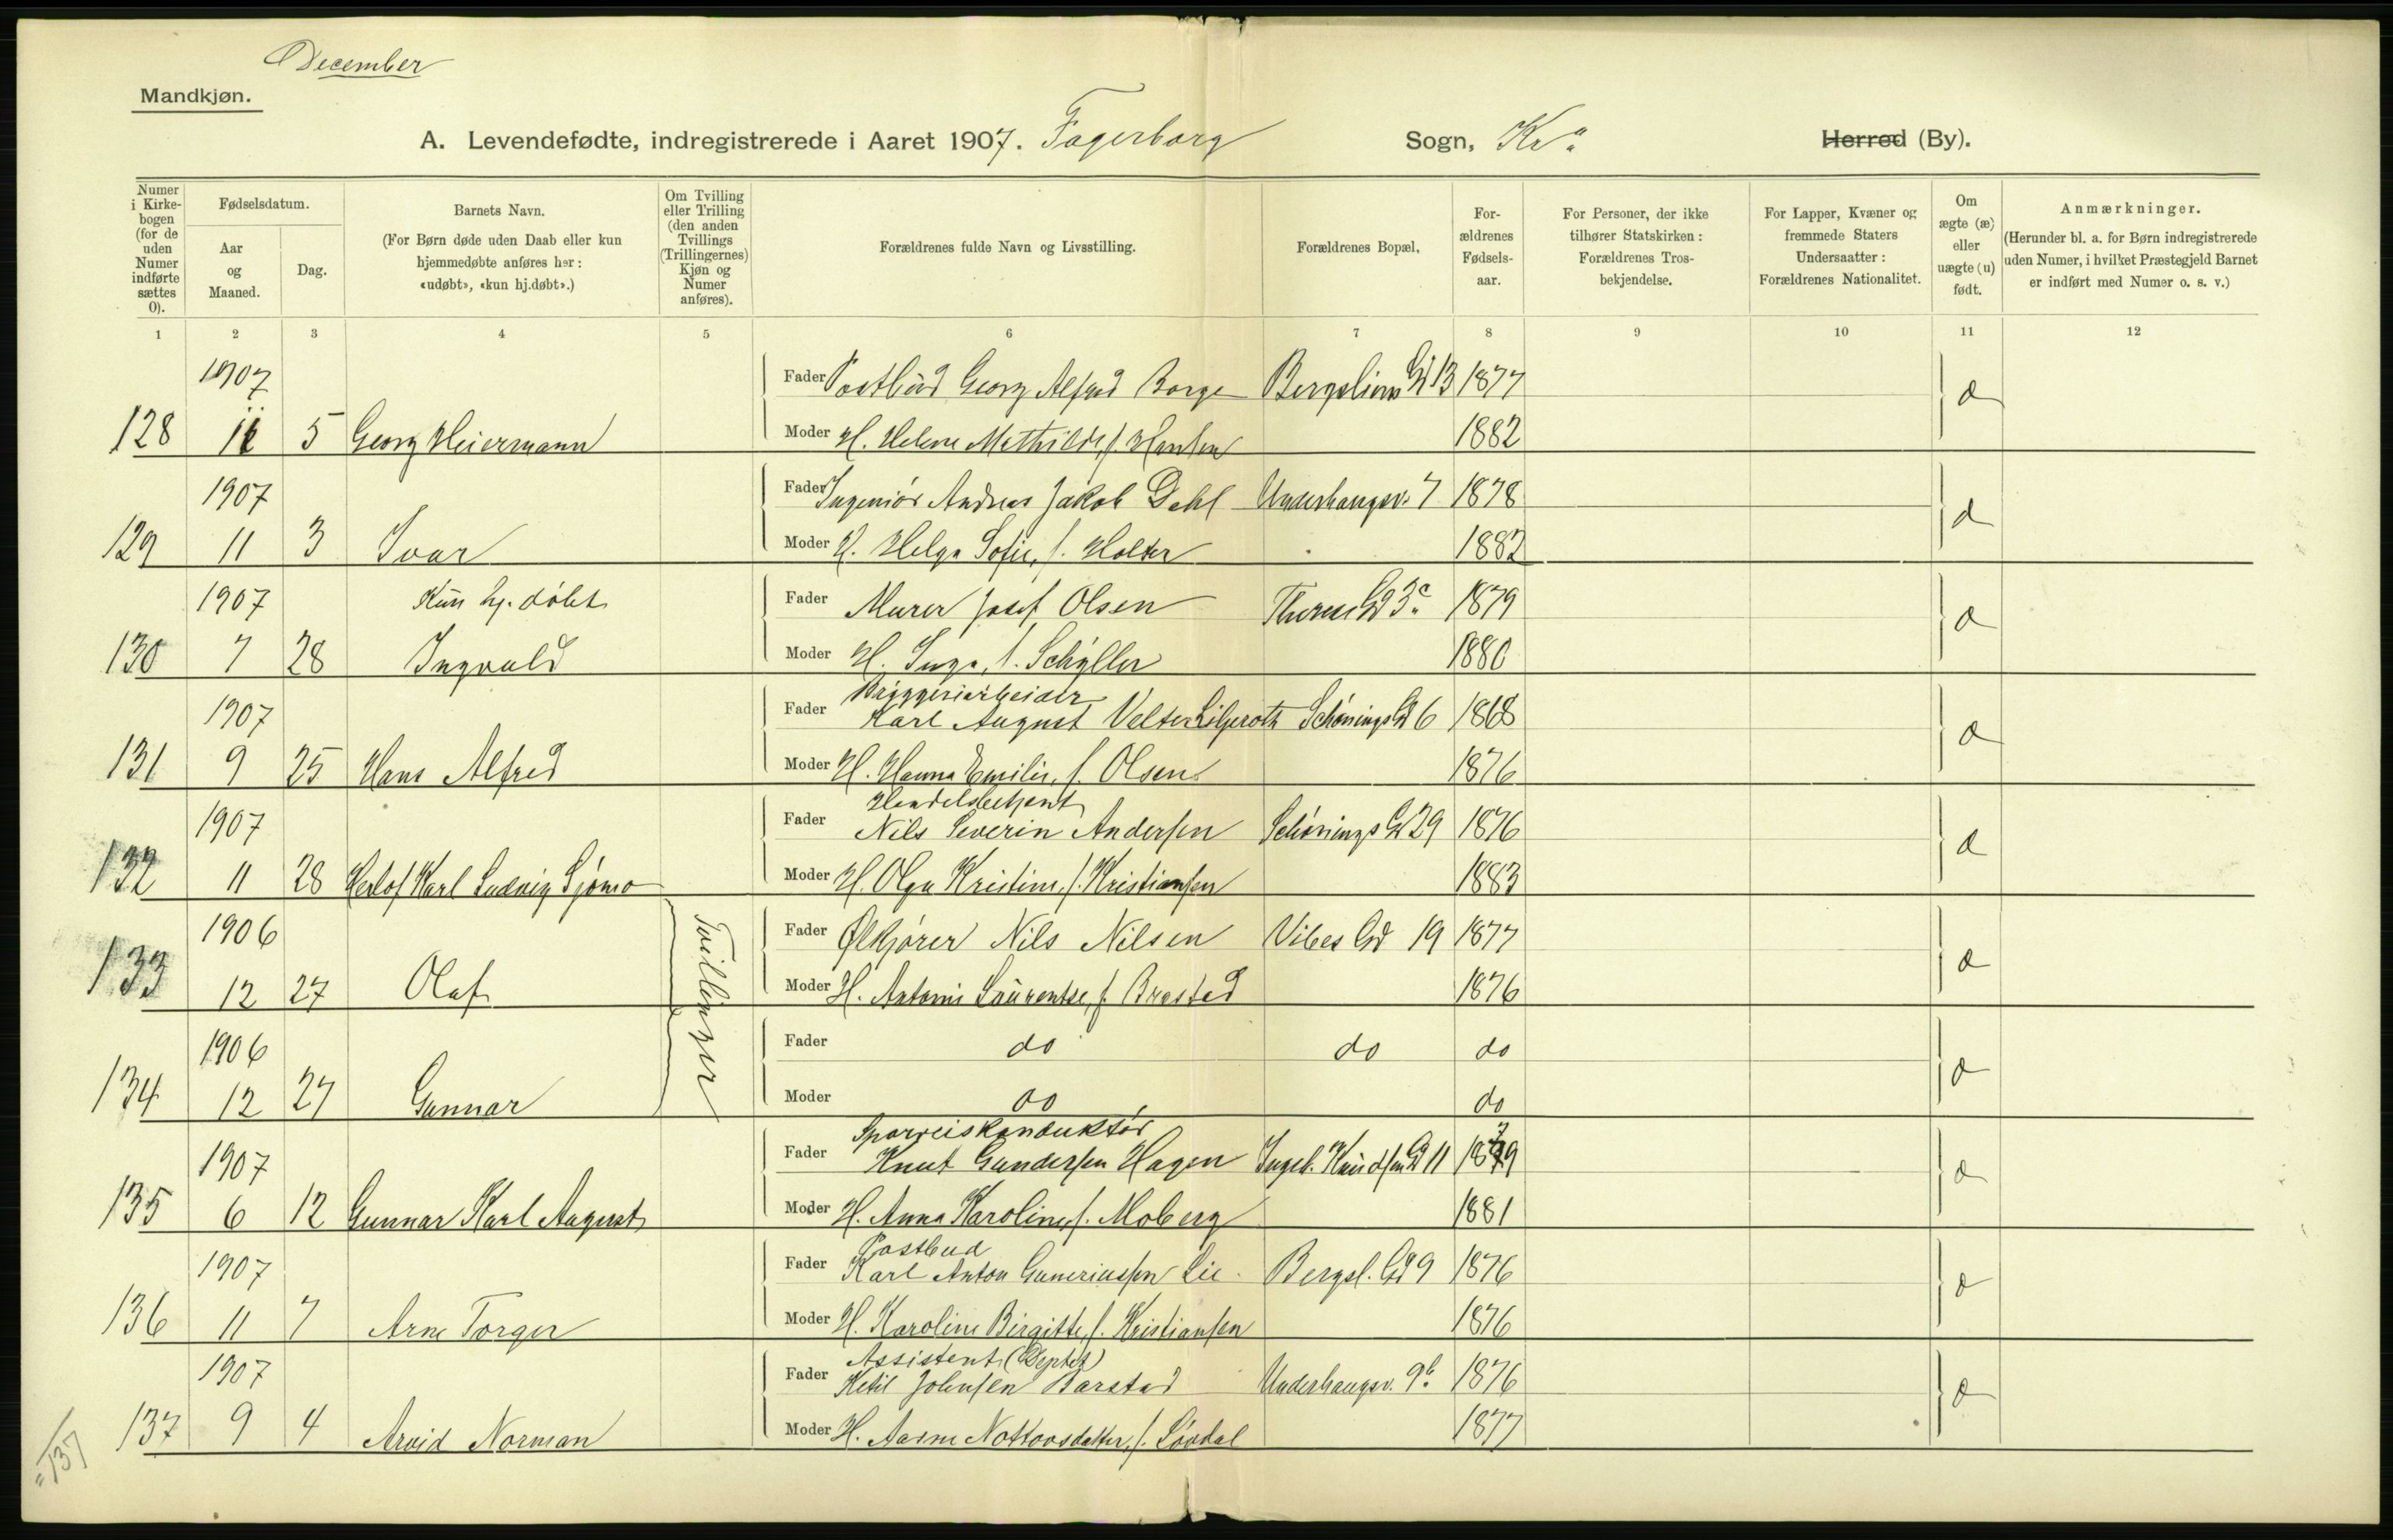 December
Mandkjøn.
A. Levendefødte, indregistrerede i Aaret 1907. Fagerborg Sogn, Kr.a Herred (By).
Numer i Kirkebogen (for de uden Numer indførte sættes 0).
Fødselsdatum.
Aar og Maaned.
Dag.
Barnets Navn.
(For Børn døde uden Daab eller kun hjemmedøbte anføres her: «udøbt», «kun hj.døbt».)
Om Tvilling eller Trilling (den anden Tvillings (Trillingernes) Kjøn og Numer anføres).
Forældrenes fulde Navn og Livsstilling.
Forældrenes Bopæl.
Forældrenes Fødselsaar.
For Personer, der ikke tilhører Statskirken: Forældrenes Trosbekjendelse.
For Lapper, Kvæner og fremmede Staters Undersaatter: Forældrenes Nationalitet.
Om ægte (æ) eller uægte (u) født.
Anmærkninger.
(Herunder bl. a. for Børn indregistrerede uden Numer, i hvilket Præstegjeld Barnet er indført med Numer o. s. v.)
1 2 3 4 5 6 7 8 9 10 11 12
1907 Fader Postbud Georg Alfred Borge Bergsliens Gd 13 1877 æ
128 11 5 Georg Heiermann Moder H. Helene Mathilde, f. Hansen 1882
1907 Fader Ingeniør Andreas Jakob Dahl Underhaugsv. 7 1878 æ
129 11 3 Ivar Moder H. Helga Sofie, f. Holter 1882
1907 Kun hj. døbt Fader Murer Josef Olsen Therese Gd 3c 1879 æ
130 7 28 Ingvald Moder H. Inga, f. Schüller 1880
Bryggeriarbeider
1907 Fader Karl August Velter Liljeroth Schønings Gd 6 1868 æ
131 9 25 Hans Alfred Moder H. Hanna Emilie, f. Olsen 1876
Handelsbetjent
1907 Fader Nils Severin Andersen Schønings Gd 29 1876 æ
132 11 28 Herlof Karl Ludvig Sjømo Moder H. Olga Kristine, f. Kristiansen 1883
1906 Tvillinger Fader Ølkjører Nils Nilsen Vibes Gd 19 1877 æ
133 12 27 Olaf Moder H. Antonie Laurentse, f. Brastad 1876
1906 Fader do do do æ
134 12 27 Gunnar Moder do do
Sporveiskonduktør
1907 Fader Knut Gundersen Hagen Ingeb. Knudsens Gd 11 1879 æ
135 6 12 Gunnar Karl August Moder H. Anna Karoline, f. Moberg 1881
Postbud
1907 Fader Karl Anton Guneriussen Lie Bergsl. Gd 9 1876 æ
136 11 7 Arne Torger Moder H. Karoline Birgitte, f. Kristiansen 1876
Assistent (Deptet)
1907 Fader Ketil Johnsen Barstad Underhaugsv. 9b 1876 æ
137 9 4 Arvid Norman Moder H. Aasne Nottovsdatter, f. Løvdal 1877
=137